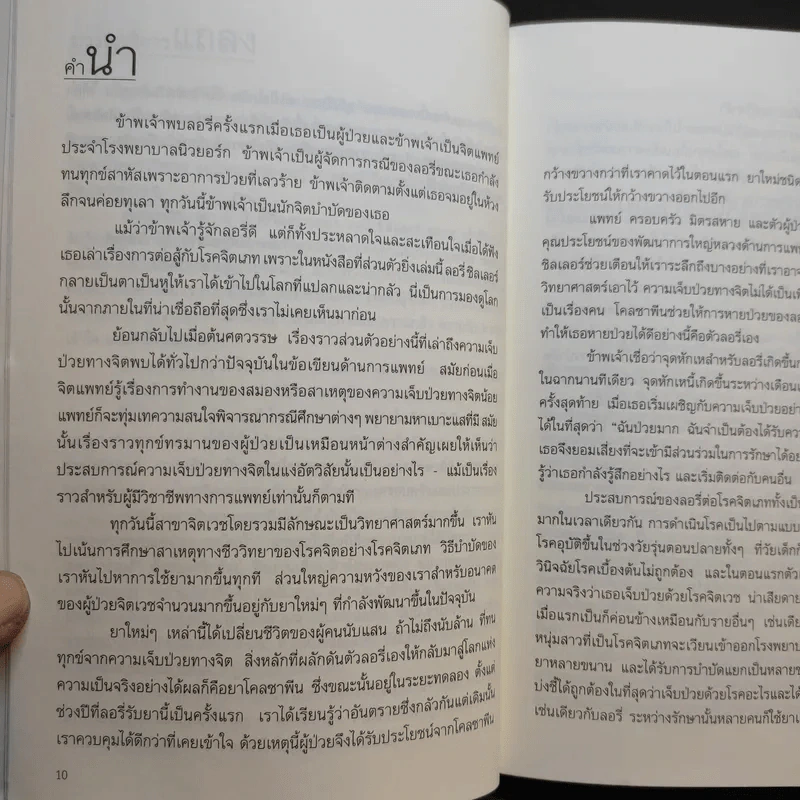 คำนำ
ข้าพเจ้าพบลอรี่ครั้งแรกเมื่อเธอเป็นผู้ป่วยและข้าพเจ้าเป็นจิตแพทย์
ประจำโรงพยาบาลนิวยอร์ก ข้าพเจ้าเป็นผู้จัดการกรณีของลอรี่ขณะเธอกำลัง
ทนทุกข์สาหัสเพราะอาการป่วยที่เลวร้าย ข้าพเจ้าติดตามตั้งแต่เธอจมอยู่ในห้วง
ลึกจนค่อยทุเลา ทุกวันนี้ข้าพเจ้าเป็นนักจิตบำบัดของเธอ
แม้ว่าข้าพเจ้ารู้จักลอรี่ดี แต่ก็ทั้งประหลาดใจและสะเทือนใจเมื่อได้ฟัง
เธอเล่าเรื่องการต่อสู้กับโรคจิตเภท เพราะในหนังสือที่ส่วนตัวยิ่งเล่มนี้ ลอรี่ ชิลเลอร์
กลายเป็นตาเป็นหูให้เราได้เข้าไปในโลกที่แปลกและน่ากลัว นี่เป็นการมองดูโลก
นั้นจากภายในที่น่าเชื่อถือที่สุดซึ่งเราไม่เคยเห็นมาก่อน
ย้อนกลับไปเมื่อต้นศตวรรษ เรื่องราวส่วนตัวอย่างนี้ที่เล่าถึงความเจ็บ
ป่วยทางจิตพบได้ทั่วไปกว่าปัจจุบันในข้อเขียนด้านการแพทย์ สมัยก่อนเมื่อ
จิตแพทย์รู้เรื่องการทำงานของสมองหรือสาเหตุของความเจ็บป่วยทางจิตน้อย
แพทย์ก็จะทุ่มเทความสนใจพิจารณากรณีศึกษาต่างๆ พยายามหาเบาะแสที่มี สมัย
นั้นเรื่องราวทุกข์ทรมานของผู้ป่วยเป็นเหมือนหน้าต่างสำคัญเผยให้เห็นว่า
ประสบการณ์ความเจ็บป่วยทางจิตในแง่อัตวิสัยนั้นเป็นอย่างไร - แม้เป็นเรื่อง
ราวสำหรับผู้มีวิชาชีพทางการแพทย์เท่านั้นก็ตามที
ทุกวันนี้สาขาจิตเวชโดยรวมมีลักษณะเป็นวิทยาศาสตร์มากขึ้น เราหัน
ไปเน้นการศึกษาสาเหตุทางชีววิทยาของโรคจิตอย่างโรคจิตเภท วิธีบำบัดของ
เราหันไปหาการใช้ยามากขึ้นทุกที ส่วนใหญ่ความหวังของเราสำหรับอนาคต
ของผู้ป่วยจิตเวชจำนวนมากขึ้นอยู่กับยาใหม่ๆ ที่กำลังพัฒนาขึ้นในปัจจุบัน
ยาใหม่ๆ เหล่านี้ได้เปลี่ยนชีวิตของผู้คนนับแสน ถ้าไม่ถึงนับล้าน ที่ทน
ทุกข์จากความเจ็บป่วยทางจิต สิ่งหลักที่ผลักดันตัวลอรี่เองให้กลับมาสู่โลกแห่ง
ความเป็นจริงอย่างได้ผลก็คือยาโคลซาพีน ซึ่งขณะนั้นอยู่ในระยะทดลอง ตั้งแต่
ช่วงปีที่ลอรี่รับยานี้เป็นครั้งแรก เราได้เรียนรู้ว่าอันตรายซึ่งกลัวกันแต่เดิมนั้น
เราควบคุมได้ดีกว่าที่เคยเข้าใจ ด้วยเหตุนี้ผู้ป่วยจึงได้รับประโยชน์จากโคลซาพีน
10
กว้างขวางกว่าที่เราคาดไว้ในตอนแรก ยาใหม่ชนิด
รับประโยชน์ให้กว้างขวางออกไปอีก
แพทย์ ครอบครัว มิตรสหาย และตัวผู้ป่
คุณประโยชน์ของพัฒนาการใหญ่หลวงด้านการแพท
ชิลเลอร์ช่วยเตือนให้เราระลึกถึงบางอย่างที่เราอาจ
วิทยาศาสตร์เอาไว้ ความเจ็บป่วยทางจิตไม่ได้เป็นเพี
เป็นเรื่องคน โคลซาพีนช่วยให้การหายป่วยของลอ
ทำให้เธอหายป่วยได้ดีอย่างนี้คือตัวลอรี่เอง
ข้าพเจ้าเชื่อว่าจุดหักเหสำหรับลอรี่เกิดขึ้นก
ในฉากนาทีเดียว จุดหักเหนี้เกิดขึ้นระหว่างเดือนแ
ครั้งสุดท้าย เมื่อเธอเริ่มเผชิญกับความเจ็บป่วยอย่า
ได้ในที่สุดว่า “ฉันป่วยมาก ฉันจำเป็นต้องได้รับควา
เธอจึงยอมเสี่ยงที่จะเข้ามีส่วนร่วมในการรักษาได้อย
รู้ว่าเธอกำลังรู้สึกอย่างไร และเริ่มติดต่อกับคนอื่น
ประสบการณ์ของลอรี่ต่อโรคจิตเภททั้งเป็
มากในเวลาเดียวกัน การดำเนินโรคเป็นไปตามแบบ
โรคอุบัติขึ้นในช่วงวัยรุ่นตอนปลายทั้งๆ ที่วัยเด็กก็
วินิจฉัยโรคเบื้องต้นไม่ถูกต้อง และในตอนแรกตัว
ความจริงว่าเธอเจ็บป่วยด้วยโรคจิตเวช น่าเสียดาย
เมื่อแรกเป็นก็ค่อนข้างเหมือนกับรายอื่นๆ เช่นเดีย
หนุ่มสาวที่เป็นโรคจิตเภทจะเวียนเข้าออกโรงพยาบ
ยาหลายขนาน และได้รับการบำบัดแยกเป็นหลายข
บ่งชี้ได้ถูกต้องในที่สุดว่าเจ็บป่วยด้วยโรคอะไรและได้
เช่นเดียวกับลอรี่ ระหว่างรักษานั้นหลายคนก็ใช้ยาเ